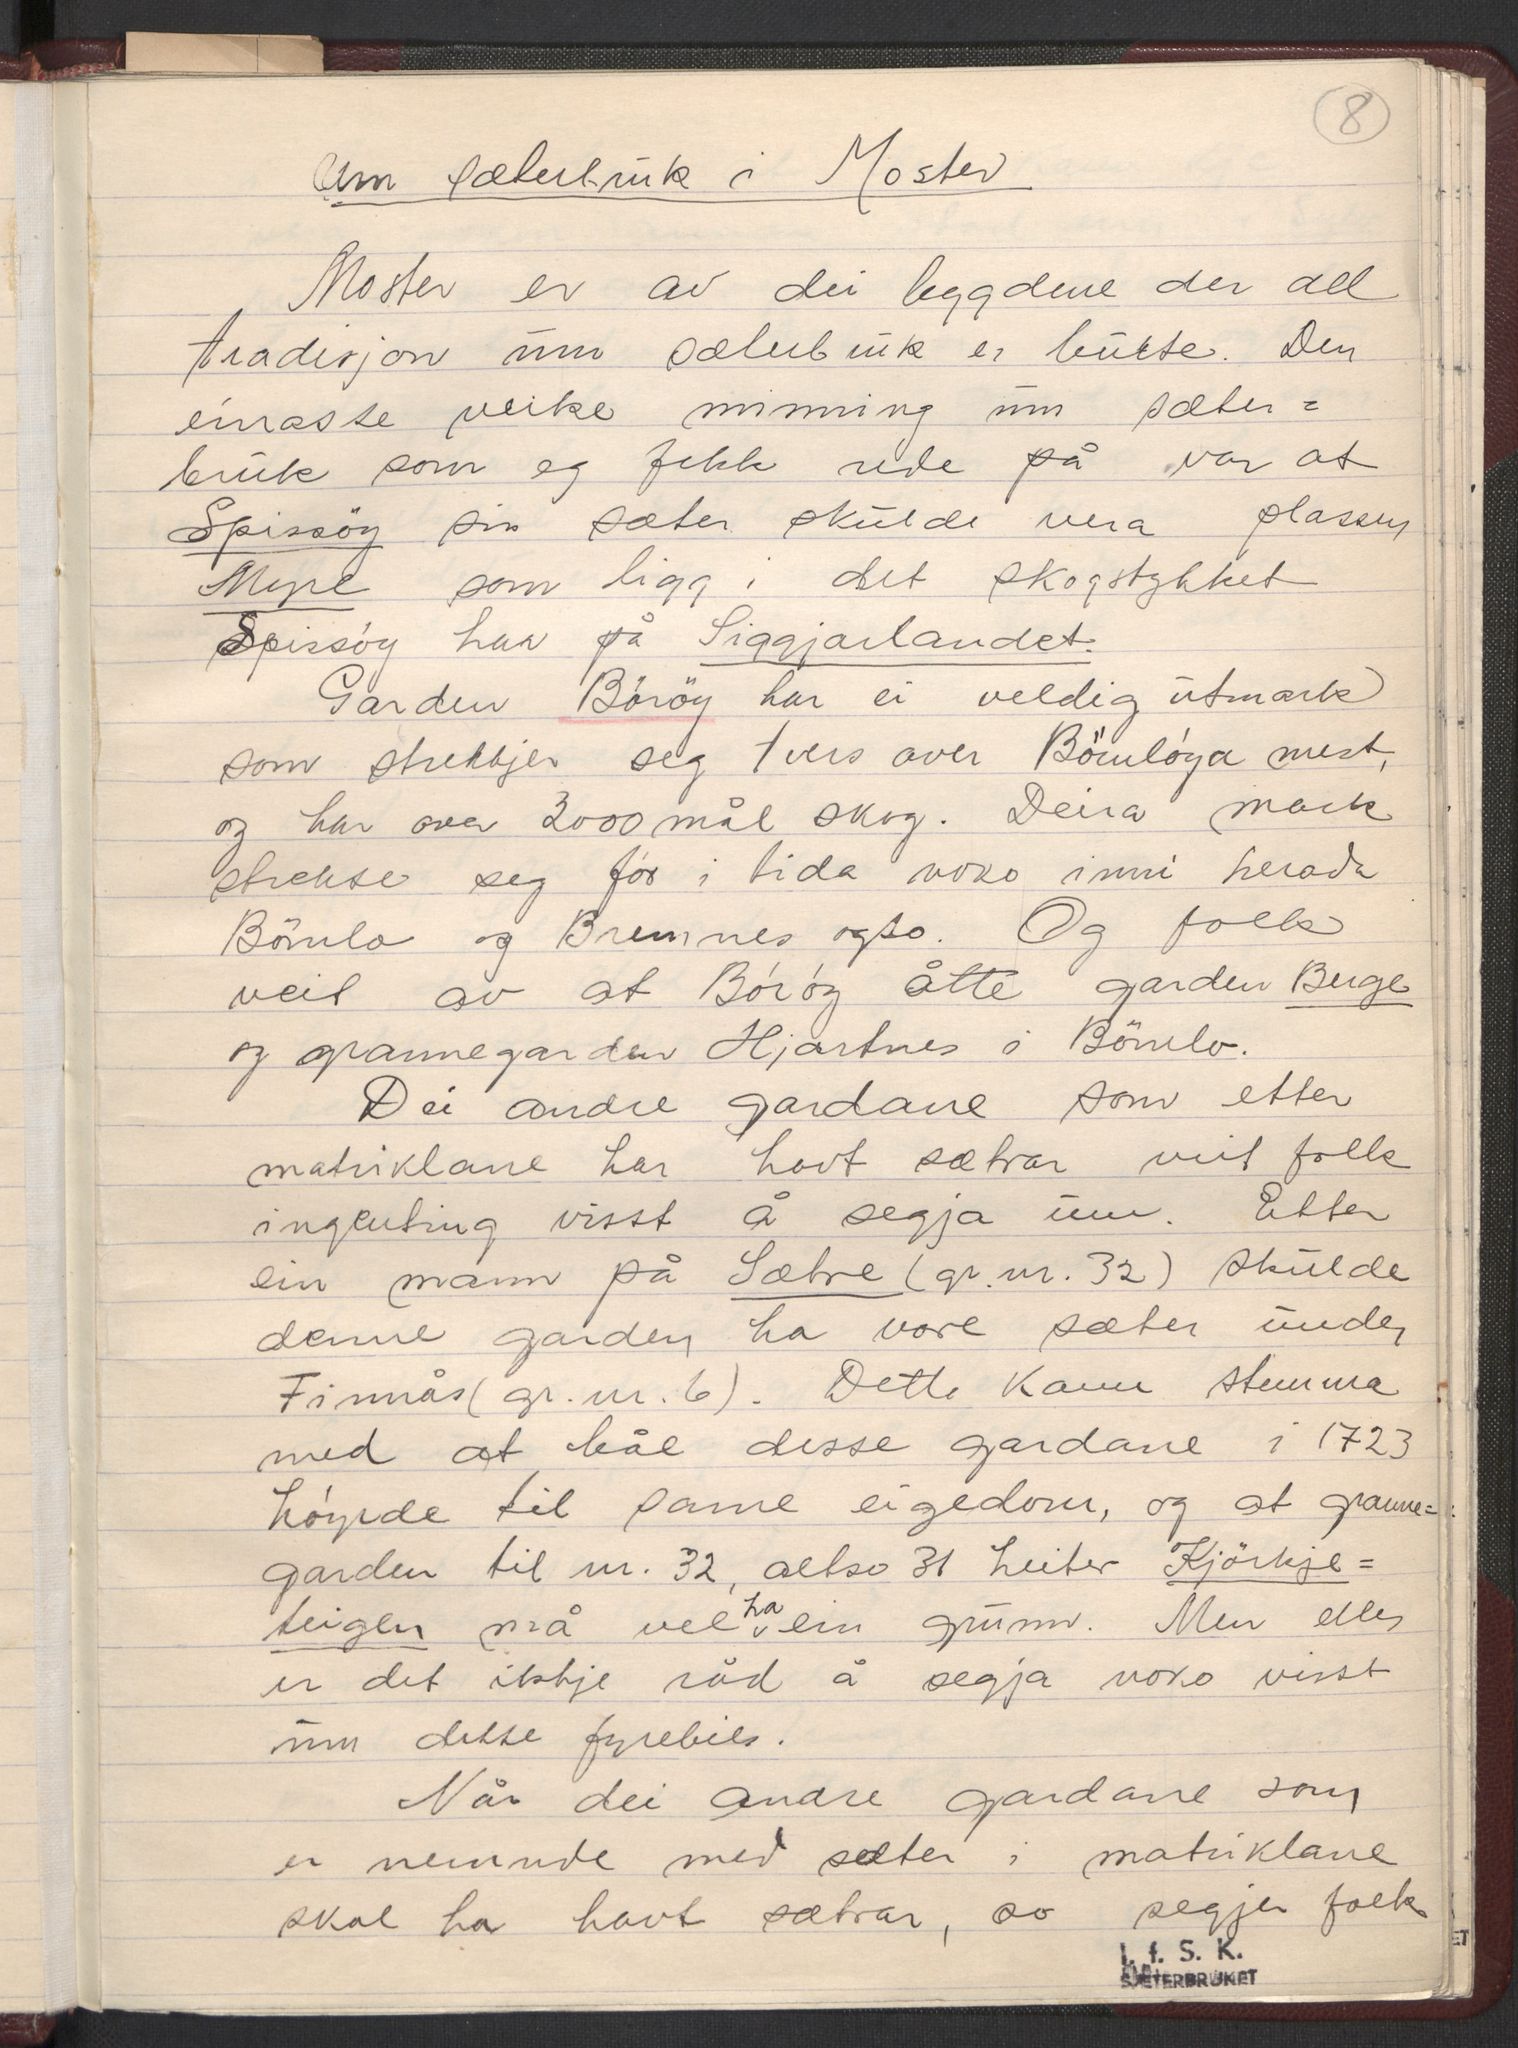 8
Um sæterbruk i Moster
Moster er av dei byggdene der all
tradisjon um sæterbruk er burte. Den
einaste veike minning um sæter=
bruk som eg fekk rede på var at
Spissöy sin sæter skulde vera plassen
Myre som ligg i det skogstykket
Spissöy har på Siggjarlandet.
Garden Böröy har ei veldig utmark
som strekkjer seg tvers over Bömlöya mest,
og har over 3000 mål skog. Deira mark
strekte seg för i tida noko inni herada
Bömlo og Bremnes ogso. Og folk
veit av at Böröy åtte garden Berge
og grannegarden Hjartnes i Bömlo.
Dei andre gardane som etter
matriklane har havt sætrar veit folk
ingenting visst å segja um. Etter
ein mann på Sætre (gr.nr. 32) skulde
denne garden ha vore sæter under
Finnås (gr.nr. 6). Dette kann stemma
med at båe desse gardane i 1723
höyrde til same eigedom, og at granne=
garden til nr. 32, altso 31 heiter Kjörkje=
teigen må vel ha ein grunn. Men elles
er det ikkje råd å segja noko visst
um dette fyrebils.
Når dei andre gardane som
er nemnde med sæter i matriklane
skal ha havt sætrar, so segjer folk
I. f. S. K.
SÆTERBRUKET